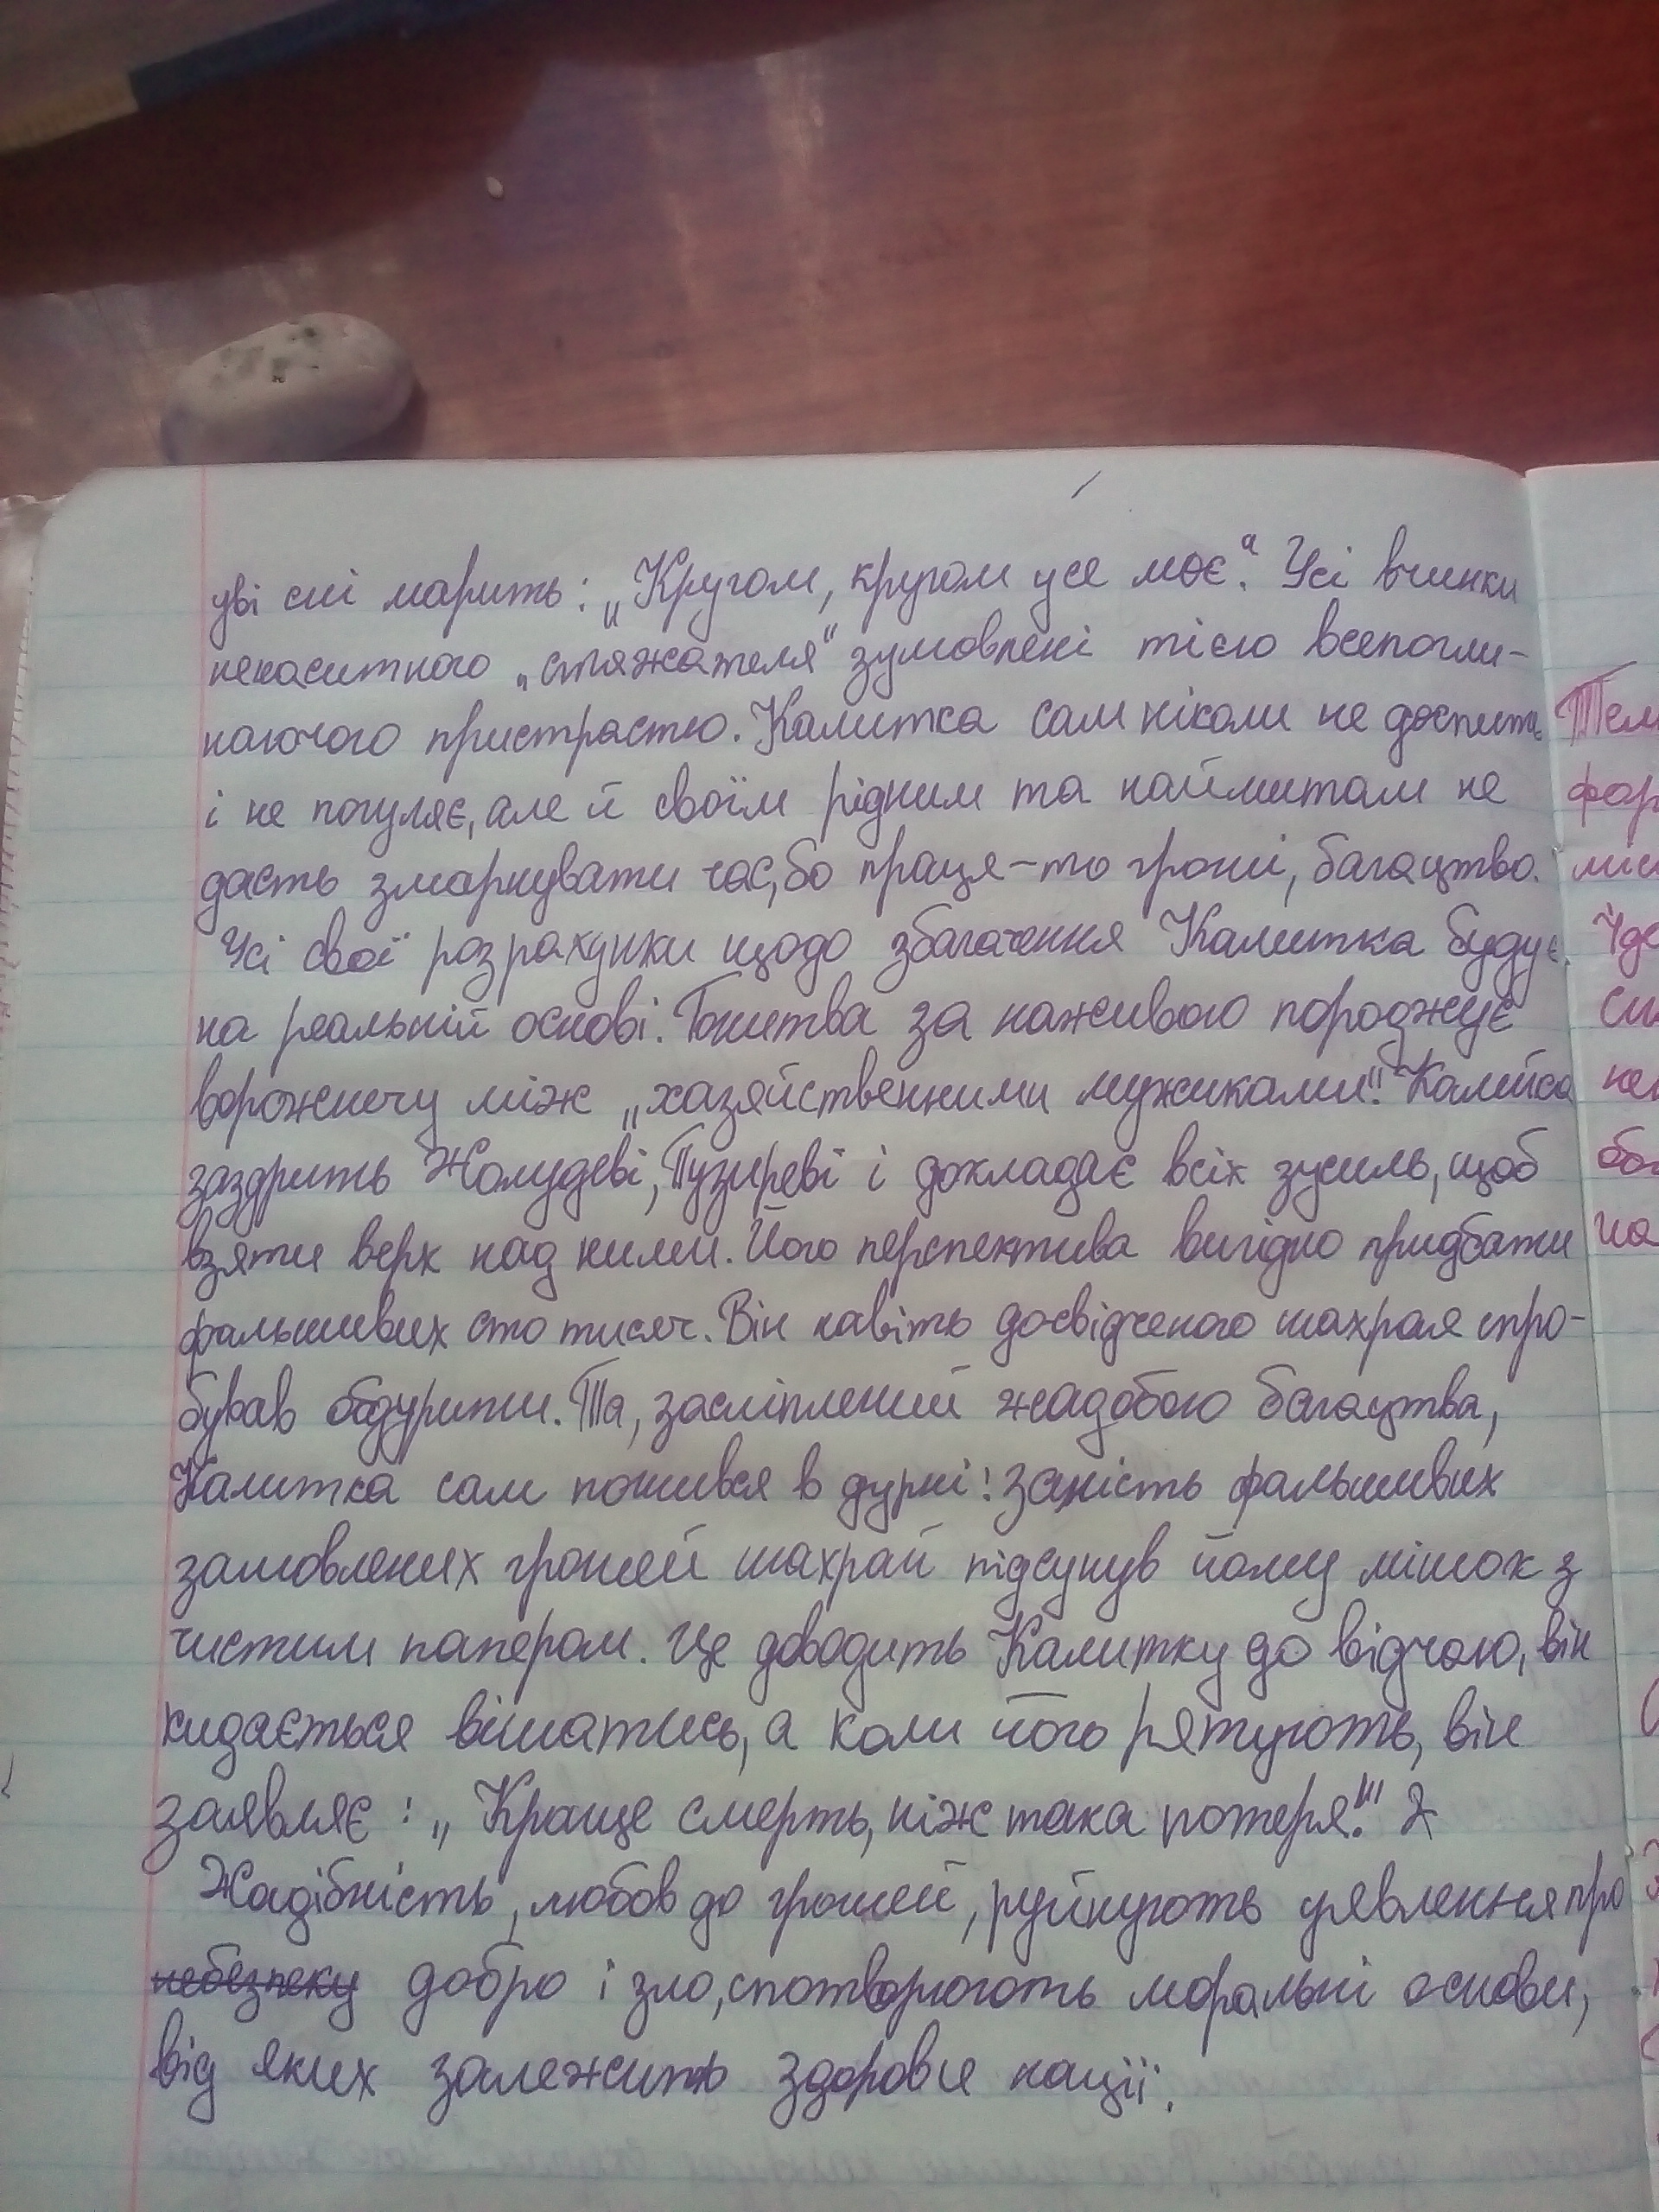 уві сні марить: „Кругом, кругом усе моє“. Усі вчинки
ненаситного „стяжателя“ зумовлені тією всепогли-
наючого пристрастю. Калитка сам ніколи не доспить
і не погуляє, але й своїм рідним та наймитам не
дасть змарнувати час, бо праця – то гроші, багацтво.
Усі свої розрахунки щодо збагачення Калитка будує
на реальній основі. Гонитва за наживою породжує
ворожнечу між „хазяйственними мужиками“. Калитка
заздрить Жолудеві, Пузиреві і докладає всіх зусиль, щоб
взяти верх над ними. Його перспектива вигідно придбати
фальшивих сто тисяч. Він навіть досвідченого шахрая спро-
бував обдурити. Та, засліплений жадобою багацтва,
Калитка сам пошився в дурні: замість фальшивих
замовлених грошей шахрай підсунув йому мішок з
чистим папером. Це доводить Калитку до відчаю, він
кидається вішатись, а коли його рятують, він
заявляє: „Краще смерть, ніж така потеря!“
Жадібність, любов до грошей, руйнують уявлення про
небезпеку добро і зло, спотворюють моральні основи,
від яких залежить здоровя нації.